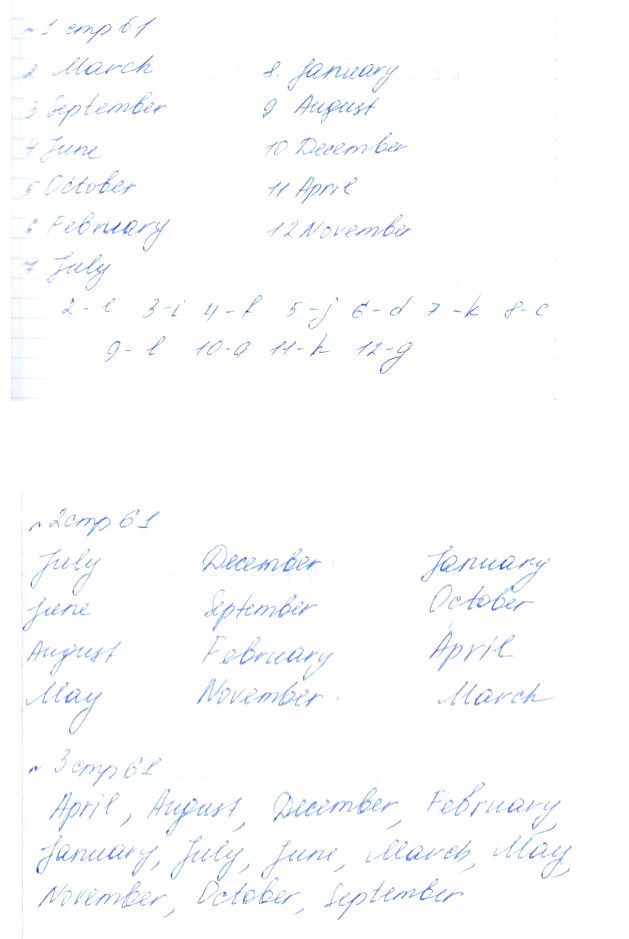 №1 стр 61
2 March 8. January
3 September 9 August
4 June 10 December
5 October 11 April
6 February 12 November
7 July
2-e 3-i 4-f 5-j 6-d 7-k 8-c
9-l 10-a 11-h 12-g
№2 стр 61
July December January
June September October
August February April
May November March
№3 стр 61
April, August, December, February,
January, July, June, March, May,
November, October, September